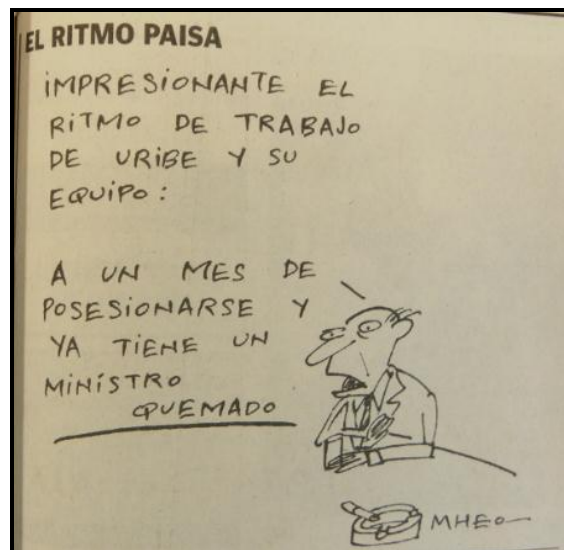 EL RITMO PAISA
IMPRESIONANTE EL
RITMO DE TRABAJO
DE URIBE Y SU
EQUIPO:
A UN MES DE
POSESIONARSE Y
YA TIENE UN
MINISTRO
QUEMADO
MHEO